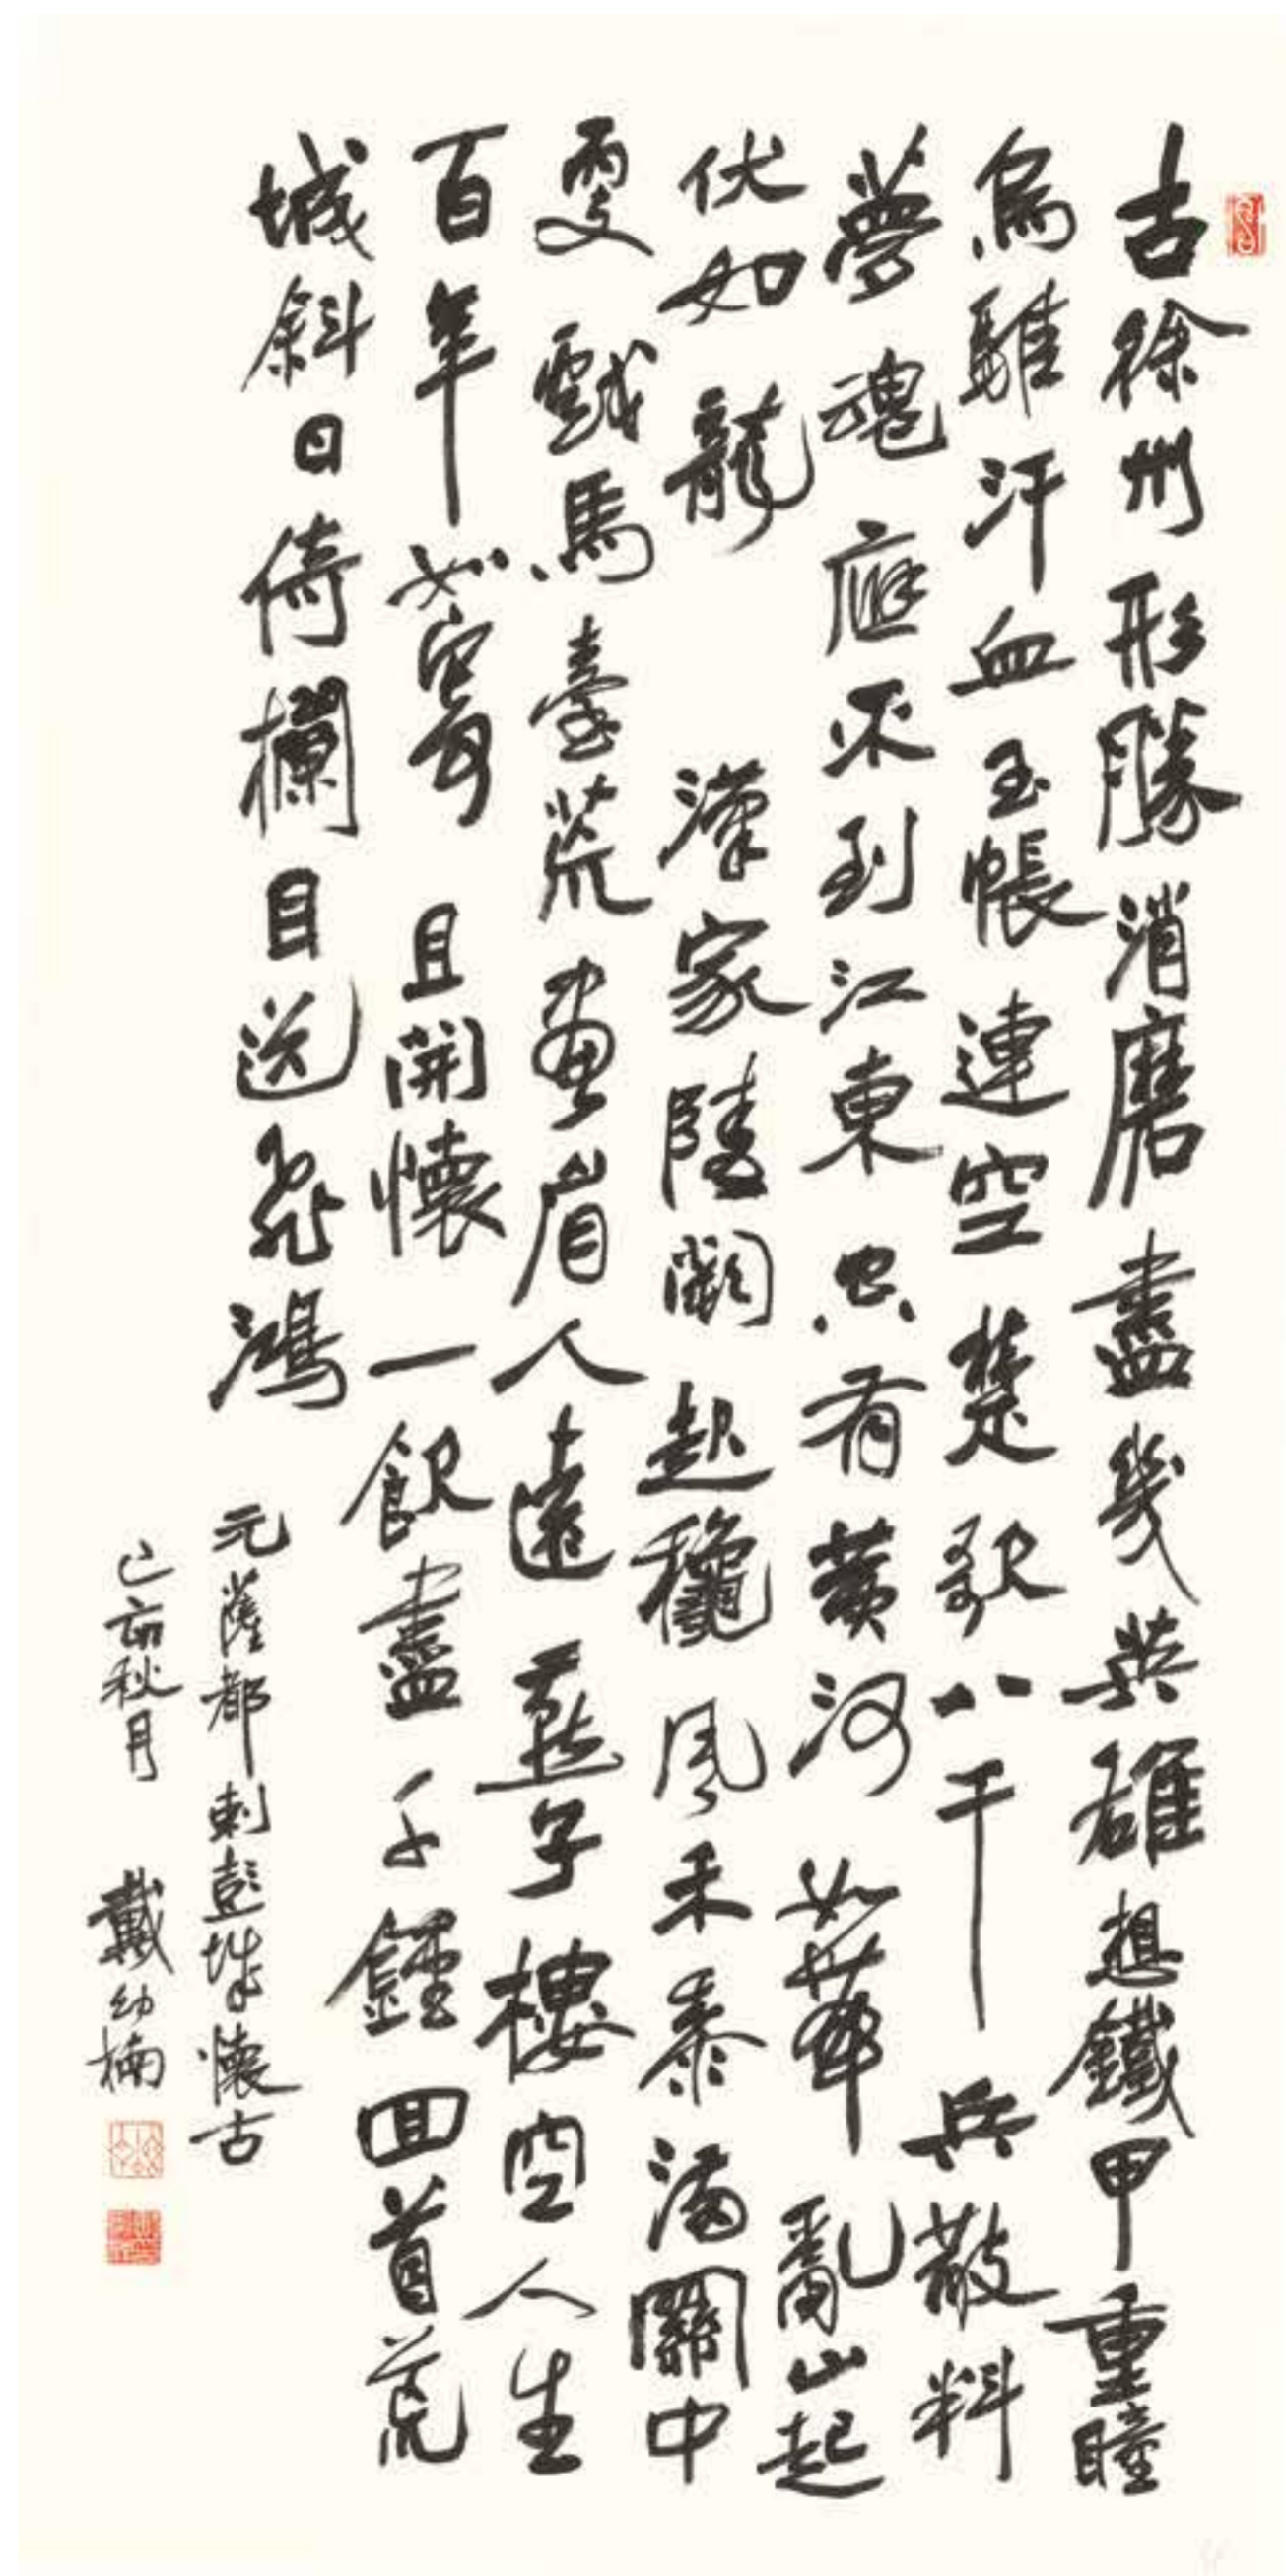 古徐州形勝消磨盡幾英雄想鐵甲重瞳
烏騅汗血玉帳連空楚歌八千兵散料
夢魂應不到江東只有黃河如帶亂山起
伏如龍漢家陵闕起秋風禾黍滿關中
更戲馬臺荒畫眉人遠燕子樓空人生
百年如寄且開懷一飲盡千鍾回首荒
城斜日倚欄目送飛鴻
元薩都剌彭城懷古
己亥秋月 戴幼楠